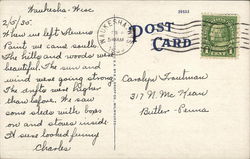 Waukesha-Wisc
2/5/30.
When we left Stevens
Point we came south.
The hills and woods were
beautiful. The sun and
wind were going strong.
The drifts were higher
than before. We saw
some sleds with boys
on and stoves inside
It sure looked funny
Charles
WAUKESHA
POST
CARD
Carolyn Troutman
317 N. McKean
Butler - Penna